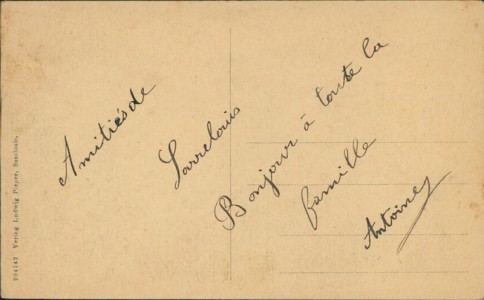 Amitiés de
Sarrelouis
Bonjour à toute la
famille
Antoine
Verlag Ludwig Pieper, Saarlouis.